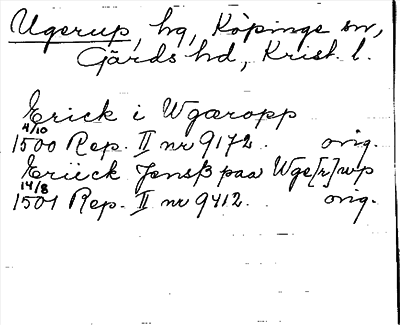 Ugerup, hg, Köpinge sn,
Gärds hd, Krist. l.
Erick i Wgæropp
4/10
1500 Rep. II nr 9172. orig.
Eriick Jensß paa Wge[r]wp
14/8
1501 Rep. II nr 9412. orig.